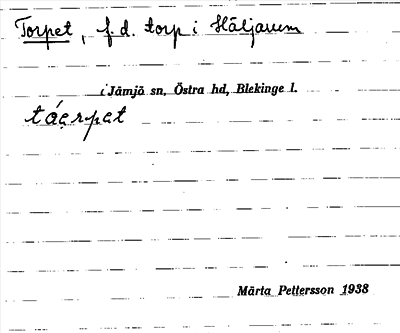 Torpet, f.d. torp i Häljarum
i Jämjö sn, Östra hd, Blekinge l.
Märta Pettersson 1938